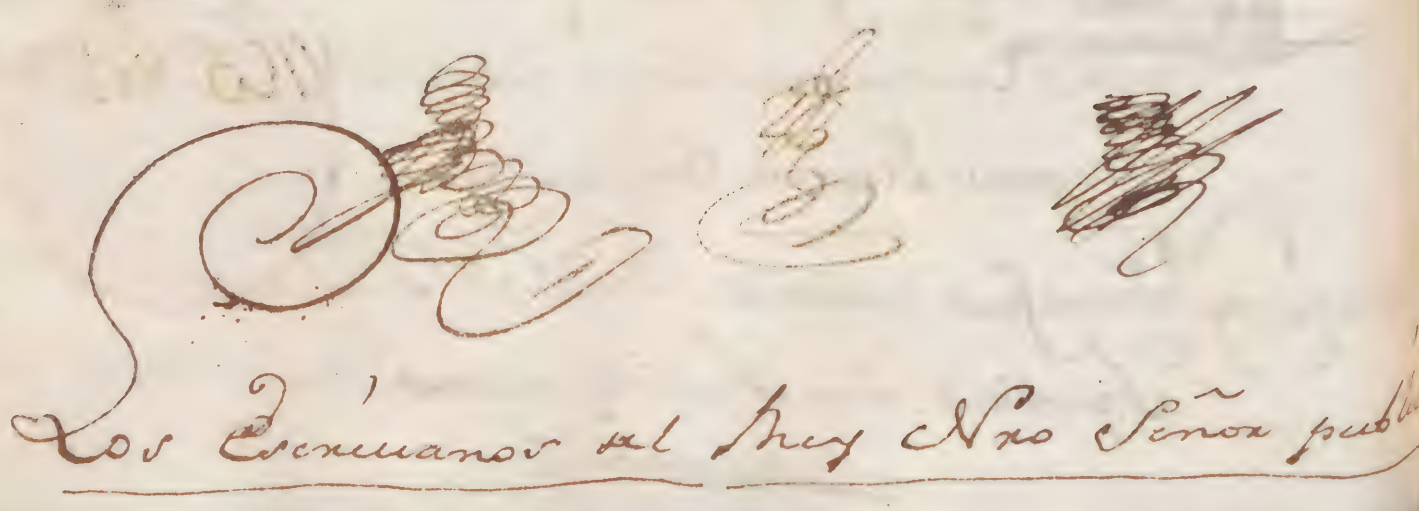 Los Escriuanos del Rey Nro Señor pub